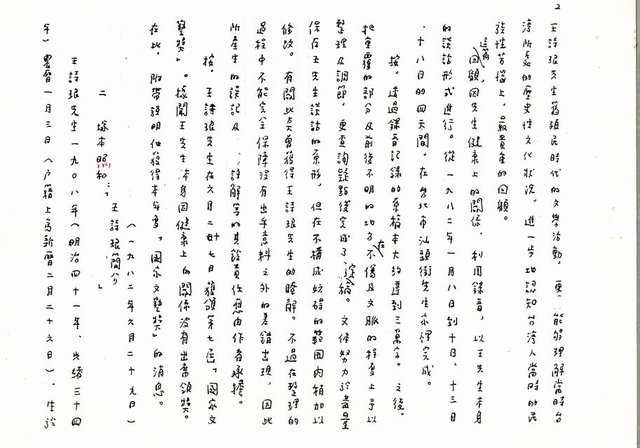 2
王詩琅舊殖民時代的文學活動，更能夠理解當時台
灣所處的歷史性文化狀況，進一步地認知台灣人當時的民
族性苦惱上，最貴重的回顧。
這篇回顧因先生健康上的關係，利用錄音，以王先生本身
的談話形式進行。從一九八二年一月八日到十日、十三日
、十八日的四天間，在台北市汕頭街先生家裡完成。
按，透過錄音記錄的原稿本大約達到三萬字。之後，
把重覆的部分及前後不明的功了在不傷及文脈的程度上予以
整理及調節，更查詢疑點後完成了定稿。文体努力於盡量
保存王先生談話的原形，但在不構成妨礙的範圍內稍加以
修改。有關此点曾獲得王詩琅先生的瞭解。不過在整理的
過程中不能完全保障沒有出乎意料之外的差錯出現，因此
所產生的誤記及 註解等的其餘責任應由作者承擔。
按，王詩琅先生在六月二十七日獲頒第七屆「國家文
藝獎」。據聞王先生本身因健康上的關係沒有出席領獎。
在此，附帶說明他獲得本年度「國家文藝獎」的消息。
（一九八二年六月二十九日）
二 塚本照和：「王詩琅簡介」
王詩琅先生一九〇八年（明治四十一年、光緒三十四
年）農曆一月三日（戶籍上為新曆二月二十六日），生於